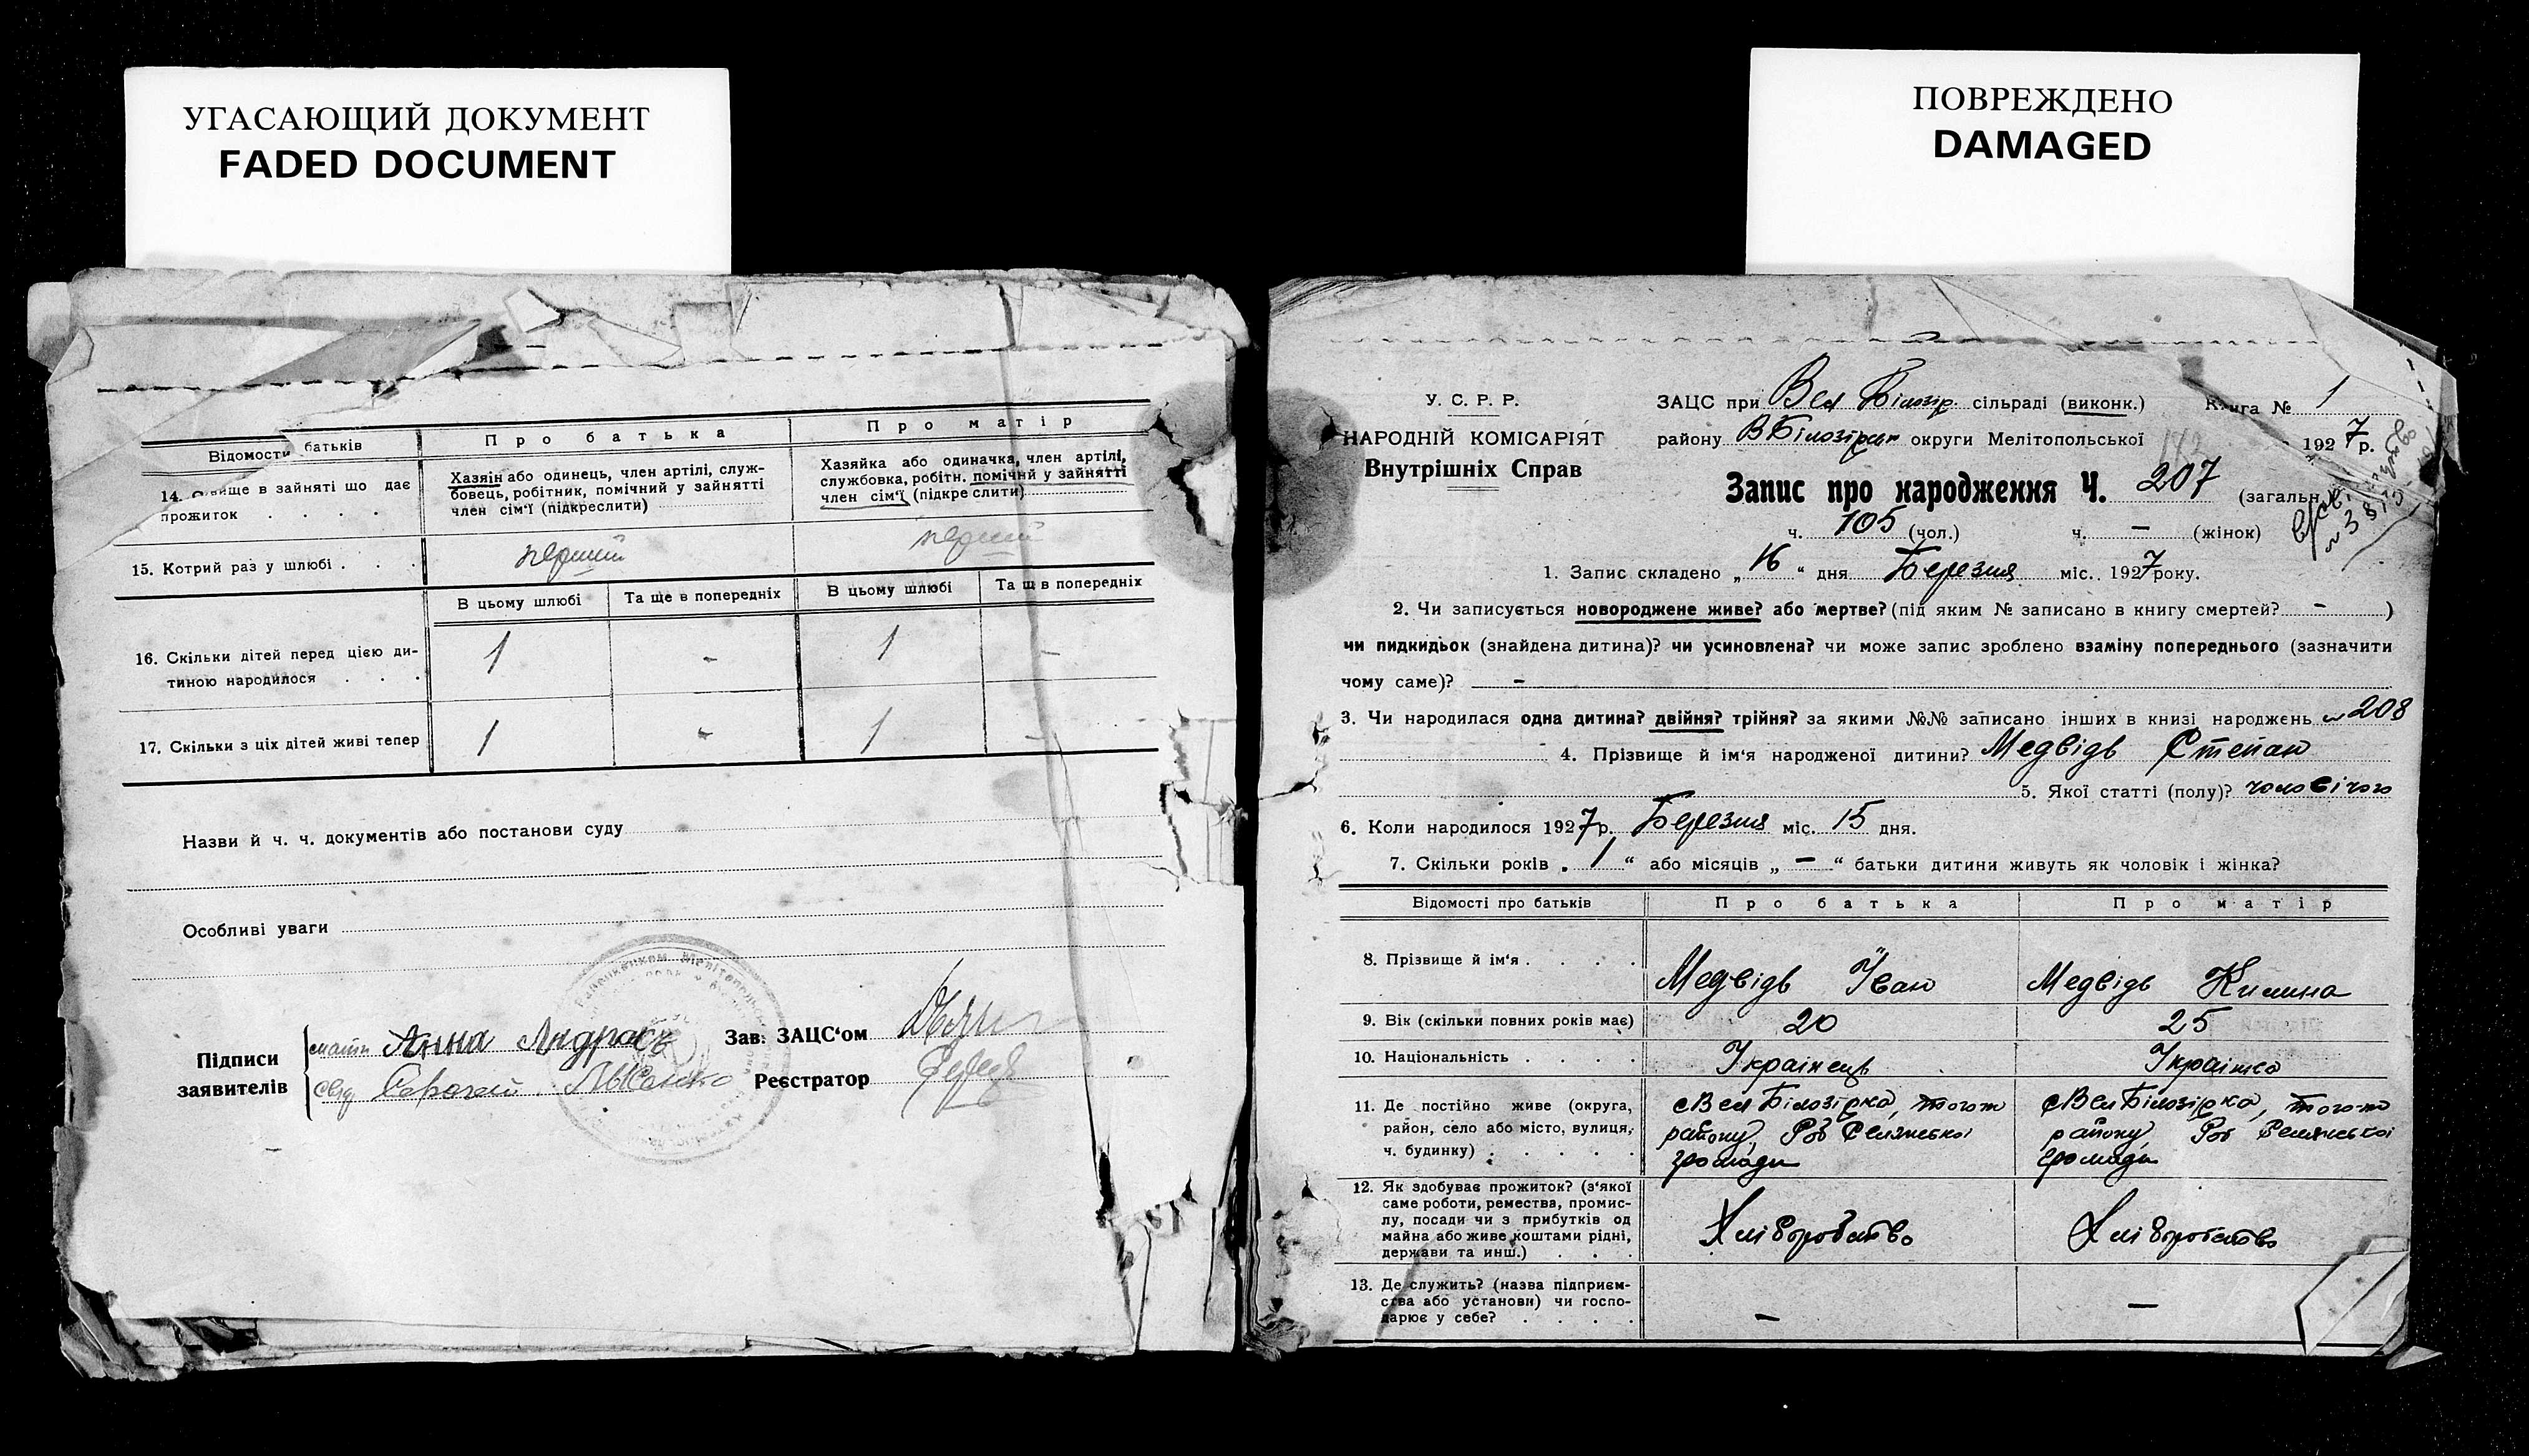 УГАСАЮЩИЙ ДОКУМЕНТ
FADED DOCUMENT
ПОВРЕЖДЕНО
DAMAGED
Відомости батьків
Про батька
Про матір
14. вище в зайняті що дає
прожиток . . . .
Хазяїн або одинець, член артілі, служ-
бовець, робітник, помічний у зайнятті
член сім'ї (підкреслити)
Хазяйка або одиначка, член артілі,
службовка, робітн. помічний у зайнятті
член сім'ї (підкреслити)
15. Котрий раз у шлюбі . . .
перший
перший
В цьому шлюбі
Та ще в попередніх
В цьому шлюбі
Та щ в попередніх
16. Скільки дітей перед цією ди-
тиною народилося . . .
1 - 1 -
17. Скільки з ціх дітей живі тепер
1 - 1 -
Назви й ч. ч. документів або постанови суду
Особливі уваги
Підписи
заявителів
Анна
Зав. ЗАЦС'ом
Реєстратор
У. С. Р. Р.
НАРОДНІЙ КОМІСАРІЯТ
Внутрішніх Справ
ЗАЦС при Вел Білозір. сільраді (виконк.)
Книга № 1
району ВБілозірск округи Мелітопольської
1927 р.
Запис про народження Ч. 207 (загальн
ч. 105 (чол.) ч. — (жінок)
1. Запис складено „16“ дня Березня міс. 1927 року.
2. Чи записується новороджене живе? або мертве? (під яким № записано в книгу смертей? - )
чи пидкидьок (знайдена дитина)? чи усиновлена? чи може запис зроблено взаміну попереднього (зазначити
чому саме)? -
3. Чи народилася одна дитина? двійня? трійня? за якими №№ записано інших в книзі народжень № 208
4. Прізвище й ім'я народженої дитини? Медвідь Степан
5. Якої статті (полу)? чоловічого
6. Коли народилося 1927 р. Березня міс. 15 дня.
7. Скільки років „1“ або місяців „—“ батьки дитини живуть як чоловік і жінка?
Відомості про батьків
Про батька
Про матір
8. Прізвище й ім'я . . . .
Медвідь Іван
Медвідь Килина
9. Вік (скільки повних років має)
20
25
10. Національність . . . .
Українець
Українка
11. Де постійно живе (округа,
район, село або місто, вулиця,
ч. будинку) . . . . .
с Вел Білозірка, того ж
району, Роб Селянської
громади
с Вел Білозірка, того ж
району Роб Селянської
громади
12. Як здобуває прожиток? (з'якої
саме роботи, ремества, промис-
лу, посади чи з прибутків од
майна або живе коштами рідні,
держави та инш.) . . .
Хліборобство
Хліборобство
13. Де служить? (назва підприєм-
ства або установи) чи госпо-
дарює у себе? . . . .
—
—